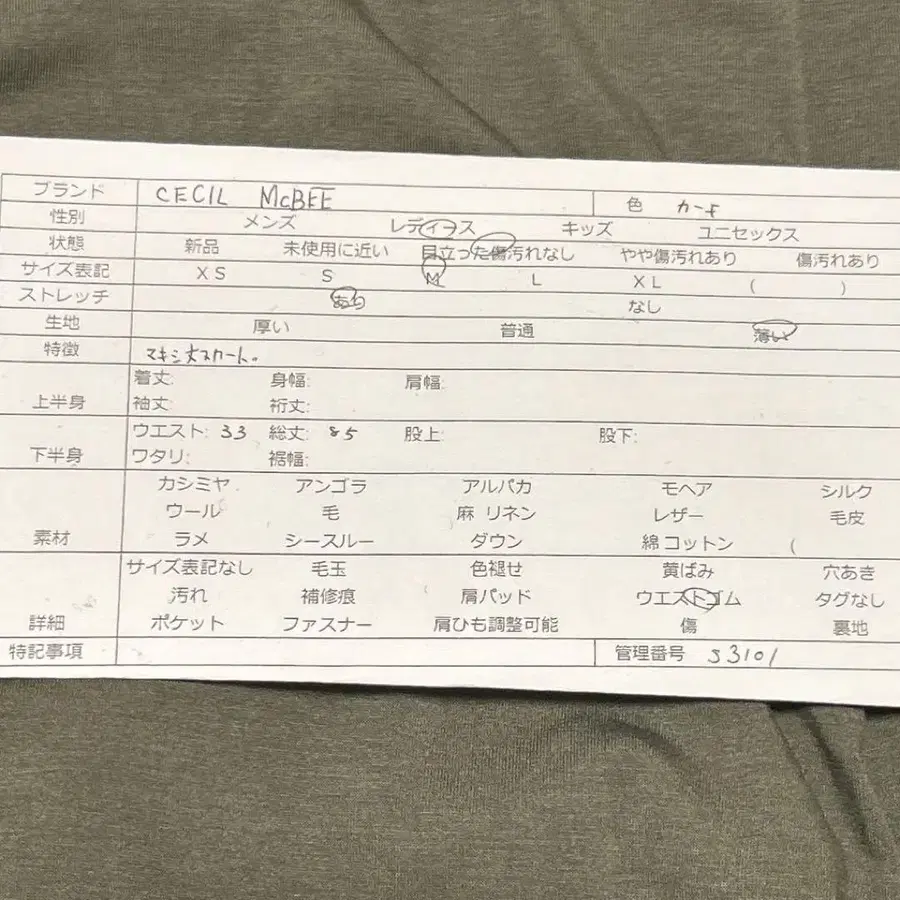 ブランド CECIL McBEE 色 カーキ
性別 メンズ レディース キッズ ユニセックス
状態 新品 未使用に近い 目立った傷汚れなし やや傷汚れあり 傷汚れあり
サイズ表記 XS S M L XL ( )
ストレッチ あり なし
生地 厚い 普通 薄い
特徴 マキシ丈スカート。
上半身 着丈: 身幅: 肩幅:
袖丈: 裄丈:
下半身 ウエスト: 33 総丈: 85 股上: 股下:
ワタリ: 裾幅:
素材 カシミヤ アンゴラ アルパカ モヘア シルク
ウール 毛 麻 リネン レザー 毛皮
ラメ シースルー ダウン 綿 コットン (
詳細 サイズ表記なし 毛玉 色褪せ 黄ばみ 穴あき
汚れ 補修痕 肩パッド ウエストゴム タグなし
ポケット ファスナー 肩ひも調整可能 傷 裏地
特記事項 管理番号 S3101